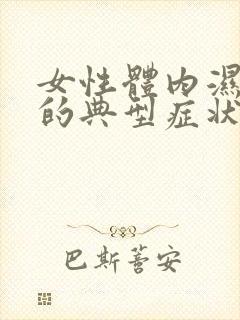 女性體內濕
的典型症狀
巴斯蒈安